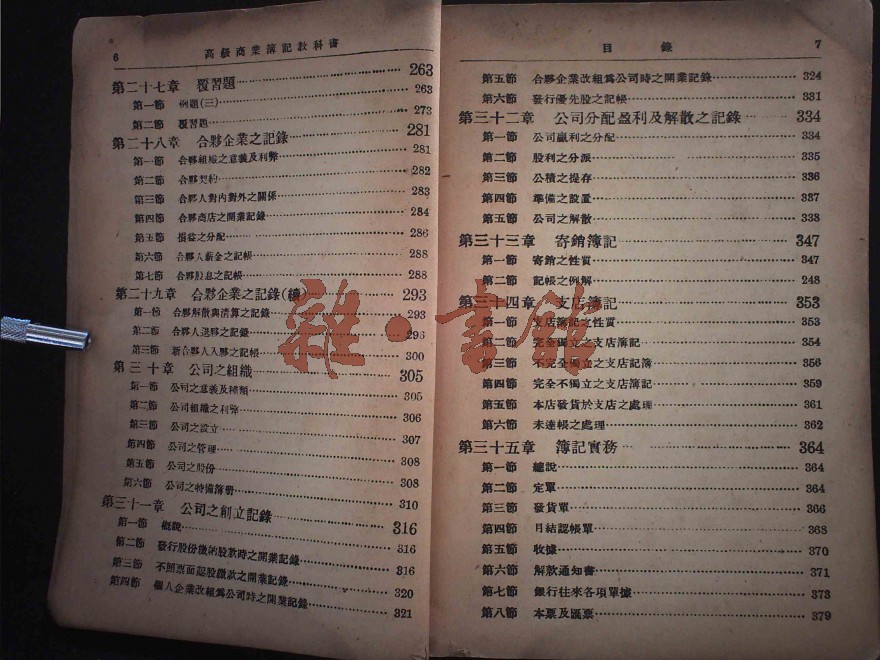 6 高級商業簿記教科書
第二十七章 覆習題 263
第一節 例題(三) 263
第二節 覆習題 273
第二十八章 合夥企業之記錄 281
第一節 合夥組織之意義及利弊 281
第二節 合夥契約 282
第三節 合夥人對內對外之關係 283
第四節 合夥商店之開業記錄 284
第五節 損益之分配 286
第六節 合夥人薪金之記帳 288
第七節 合夥股息之記帳 288
第二十九章 合夥企業之記錄(續) 293
第一節 合夥解散與清算之記錄 293
第二節 合夥人退夥之記錄 296
第三節 新合夥人入夥之記帳 300
第三十章 公司之組織 305
第一節 公司之意義及種類 305
第二節 公司組織之利弊 306
第三節 公司之設立 307
第四節 公司之管理 308
第五節 公司之股份 308
第六節 公司之特備簿册 310
第三十一章 公司之創立記錄 316
第一節 概說 316
第二節 發行股份繳納股款時之開業記錄 316
第三節 不照票面認股繳款之開業記錄 320
第四節 個人企業改組爲公司時之開業記錄 321
目錄 7
第五節 合夥企業改組爲公司時之開業記錄 324
第六節 發行優先股之記帳 331
第三十二章 公司分配盈利及解散之記錄 334
第一節 公司贏利之分配 334
第二節 股利之分派 335
第三節 公積之提存 336
第四節 準備之設置 337
第五節 公司之解散 338
第三十三章 寄銷簿記 347
第一節 寄銷之性質 347
第二節 記帳之例解 248
第三十四章 支店簿記 353
第一節 支店簿記之性質 353
第二節 完全獨立之支店簿記 354
第三節 不完全獨立之支店記簿 356
第四節 完全不獨立之支店簿記 359
第五節 本店發貨於支店之處理 361
第六節 未達帳之處理 362
第三十五章 簿記實務 364
第一節 總說 364
第二節 定單 364
第三節 發貨單 366
第四節 月結認帳單 368
第五節 收據 370
第六節 解款通知書 371
第七節 銀行往來各項單據 373
第八節 本票及匯票 379
雜·書館